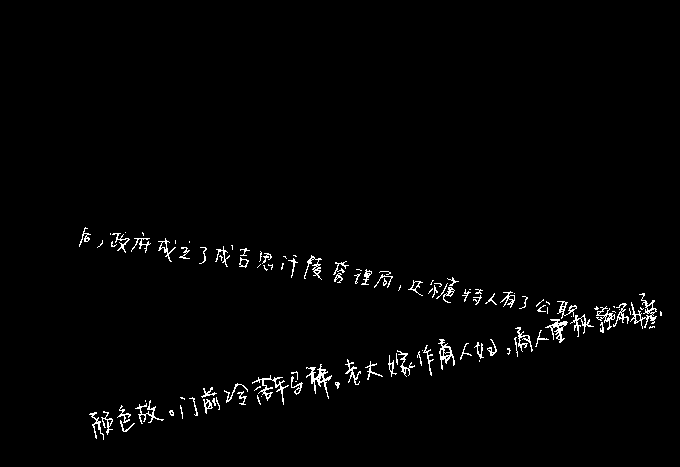 后,政府成立了成吉思汗陵管理局,达尔扈特人有了公职
颜色故。门前冷落车马稀,老大嫁作商人妇,商人重